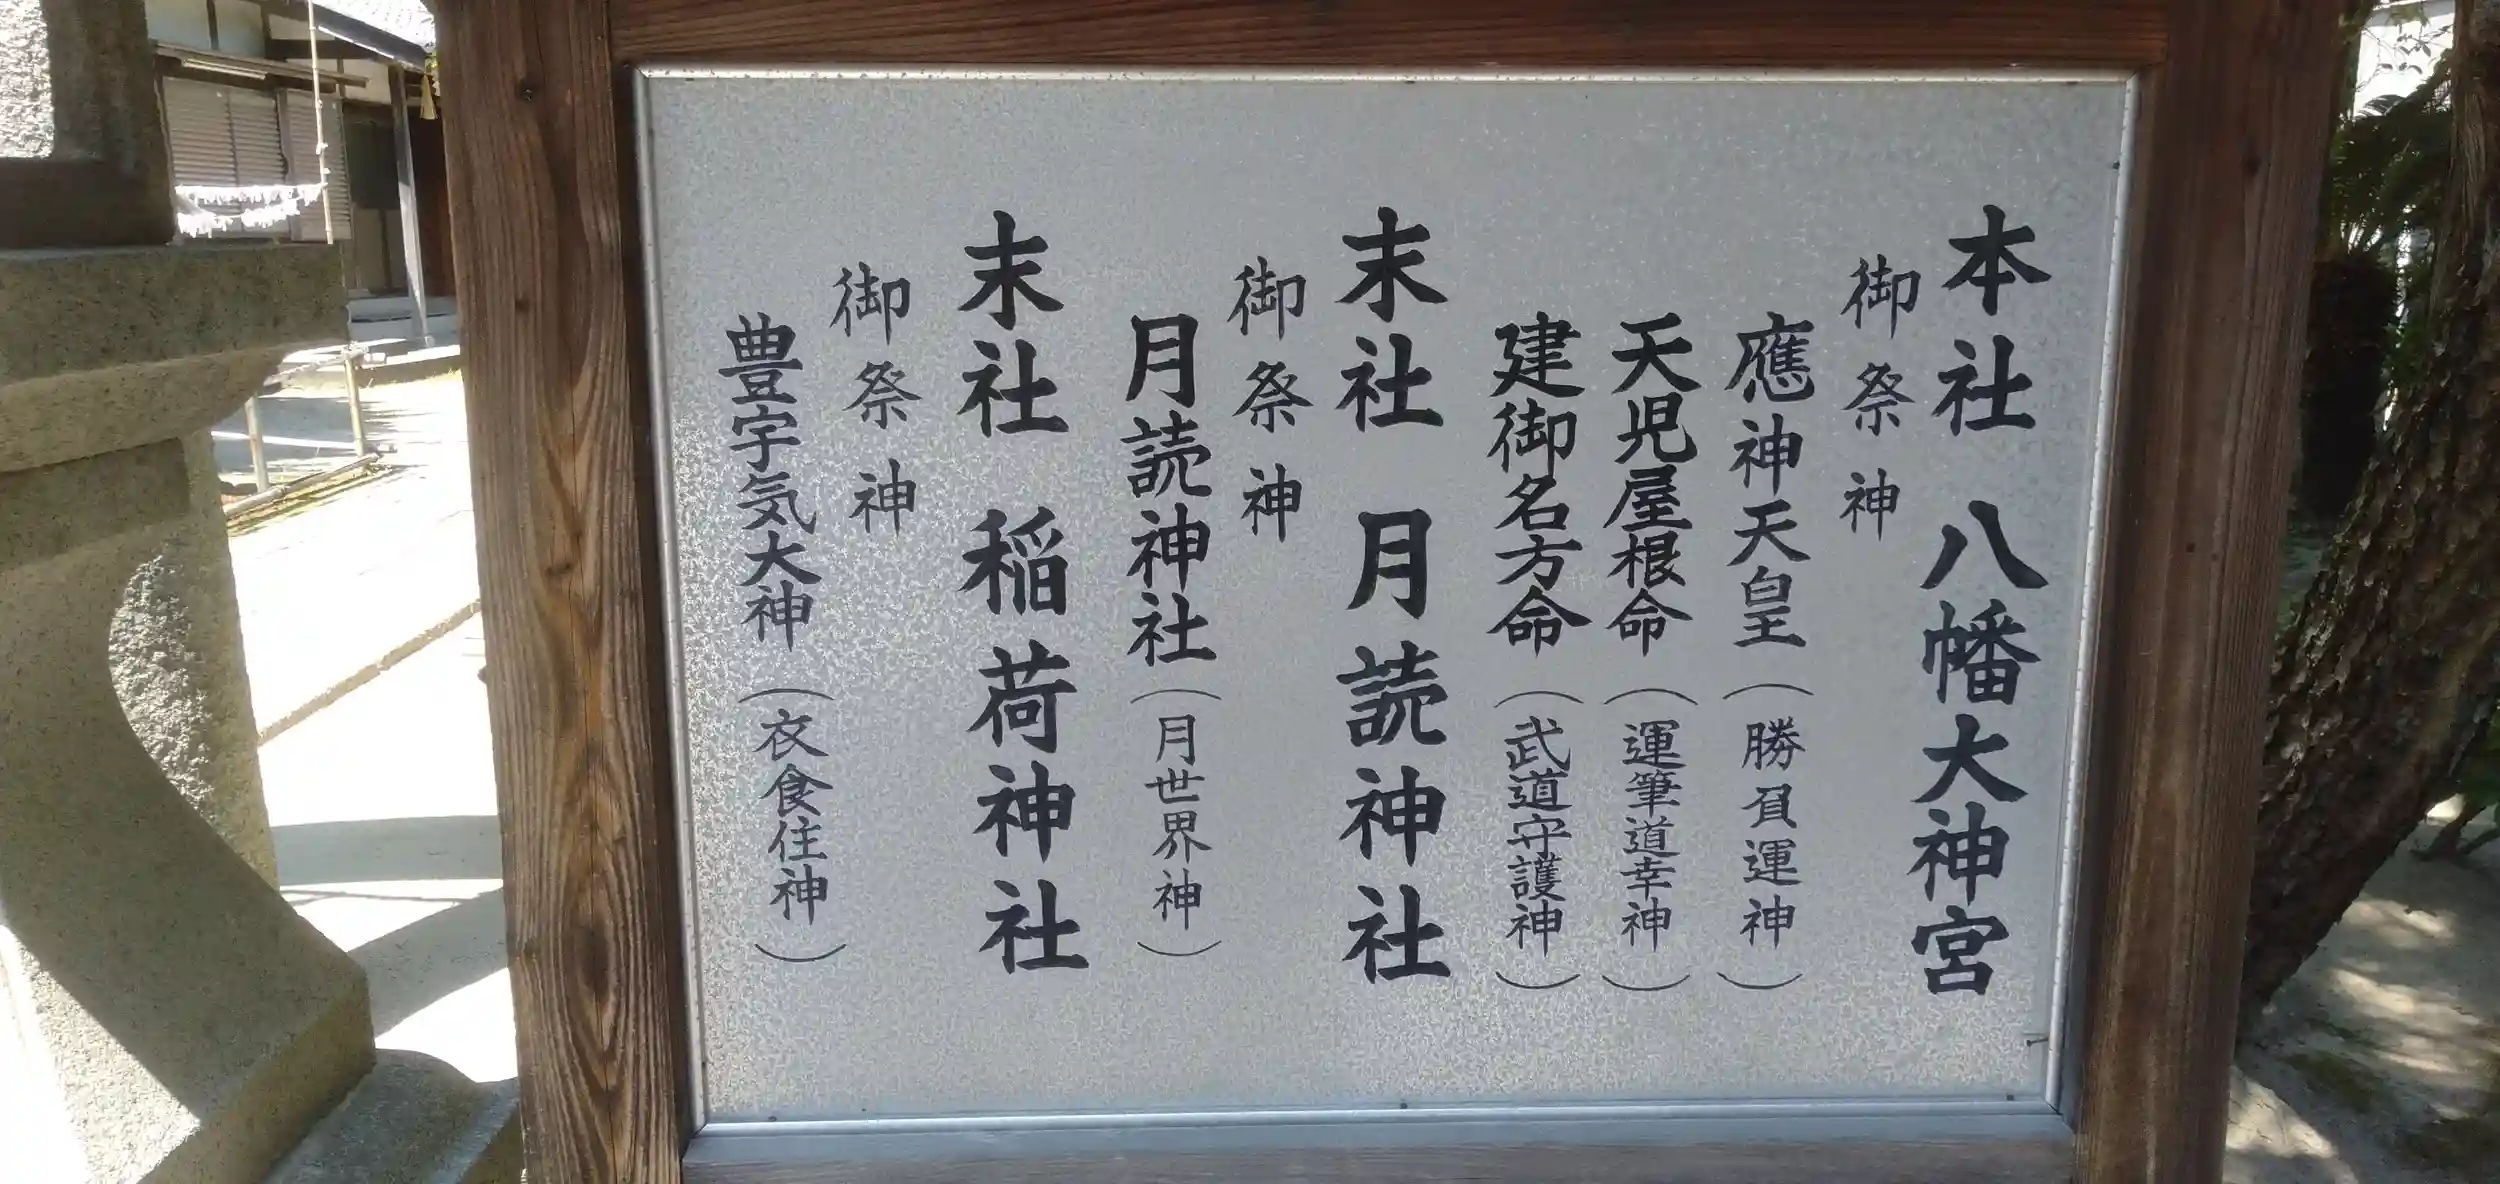 本社 八幡大神宮
御祭神
應神天皇(勝負運神)
天児屋根命(運筆道幸神)
建御名方命(武道守護神)
末社 月読神社
御祭神
月読神社(月世界神)
末社 稲荷神社
御祭神
豊宇気大神(衣食住神)